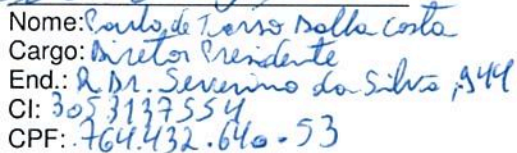 Nome: Paulo de Tarso Dalla Costa
Cargo: Diretor Presidente
End.: R Dr. Severino da Silva, 944
CI: 3053137554
CPF: 764.432.640-53